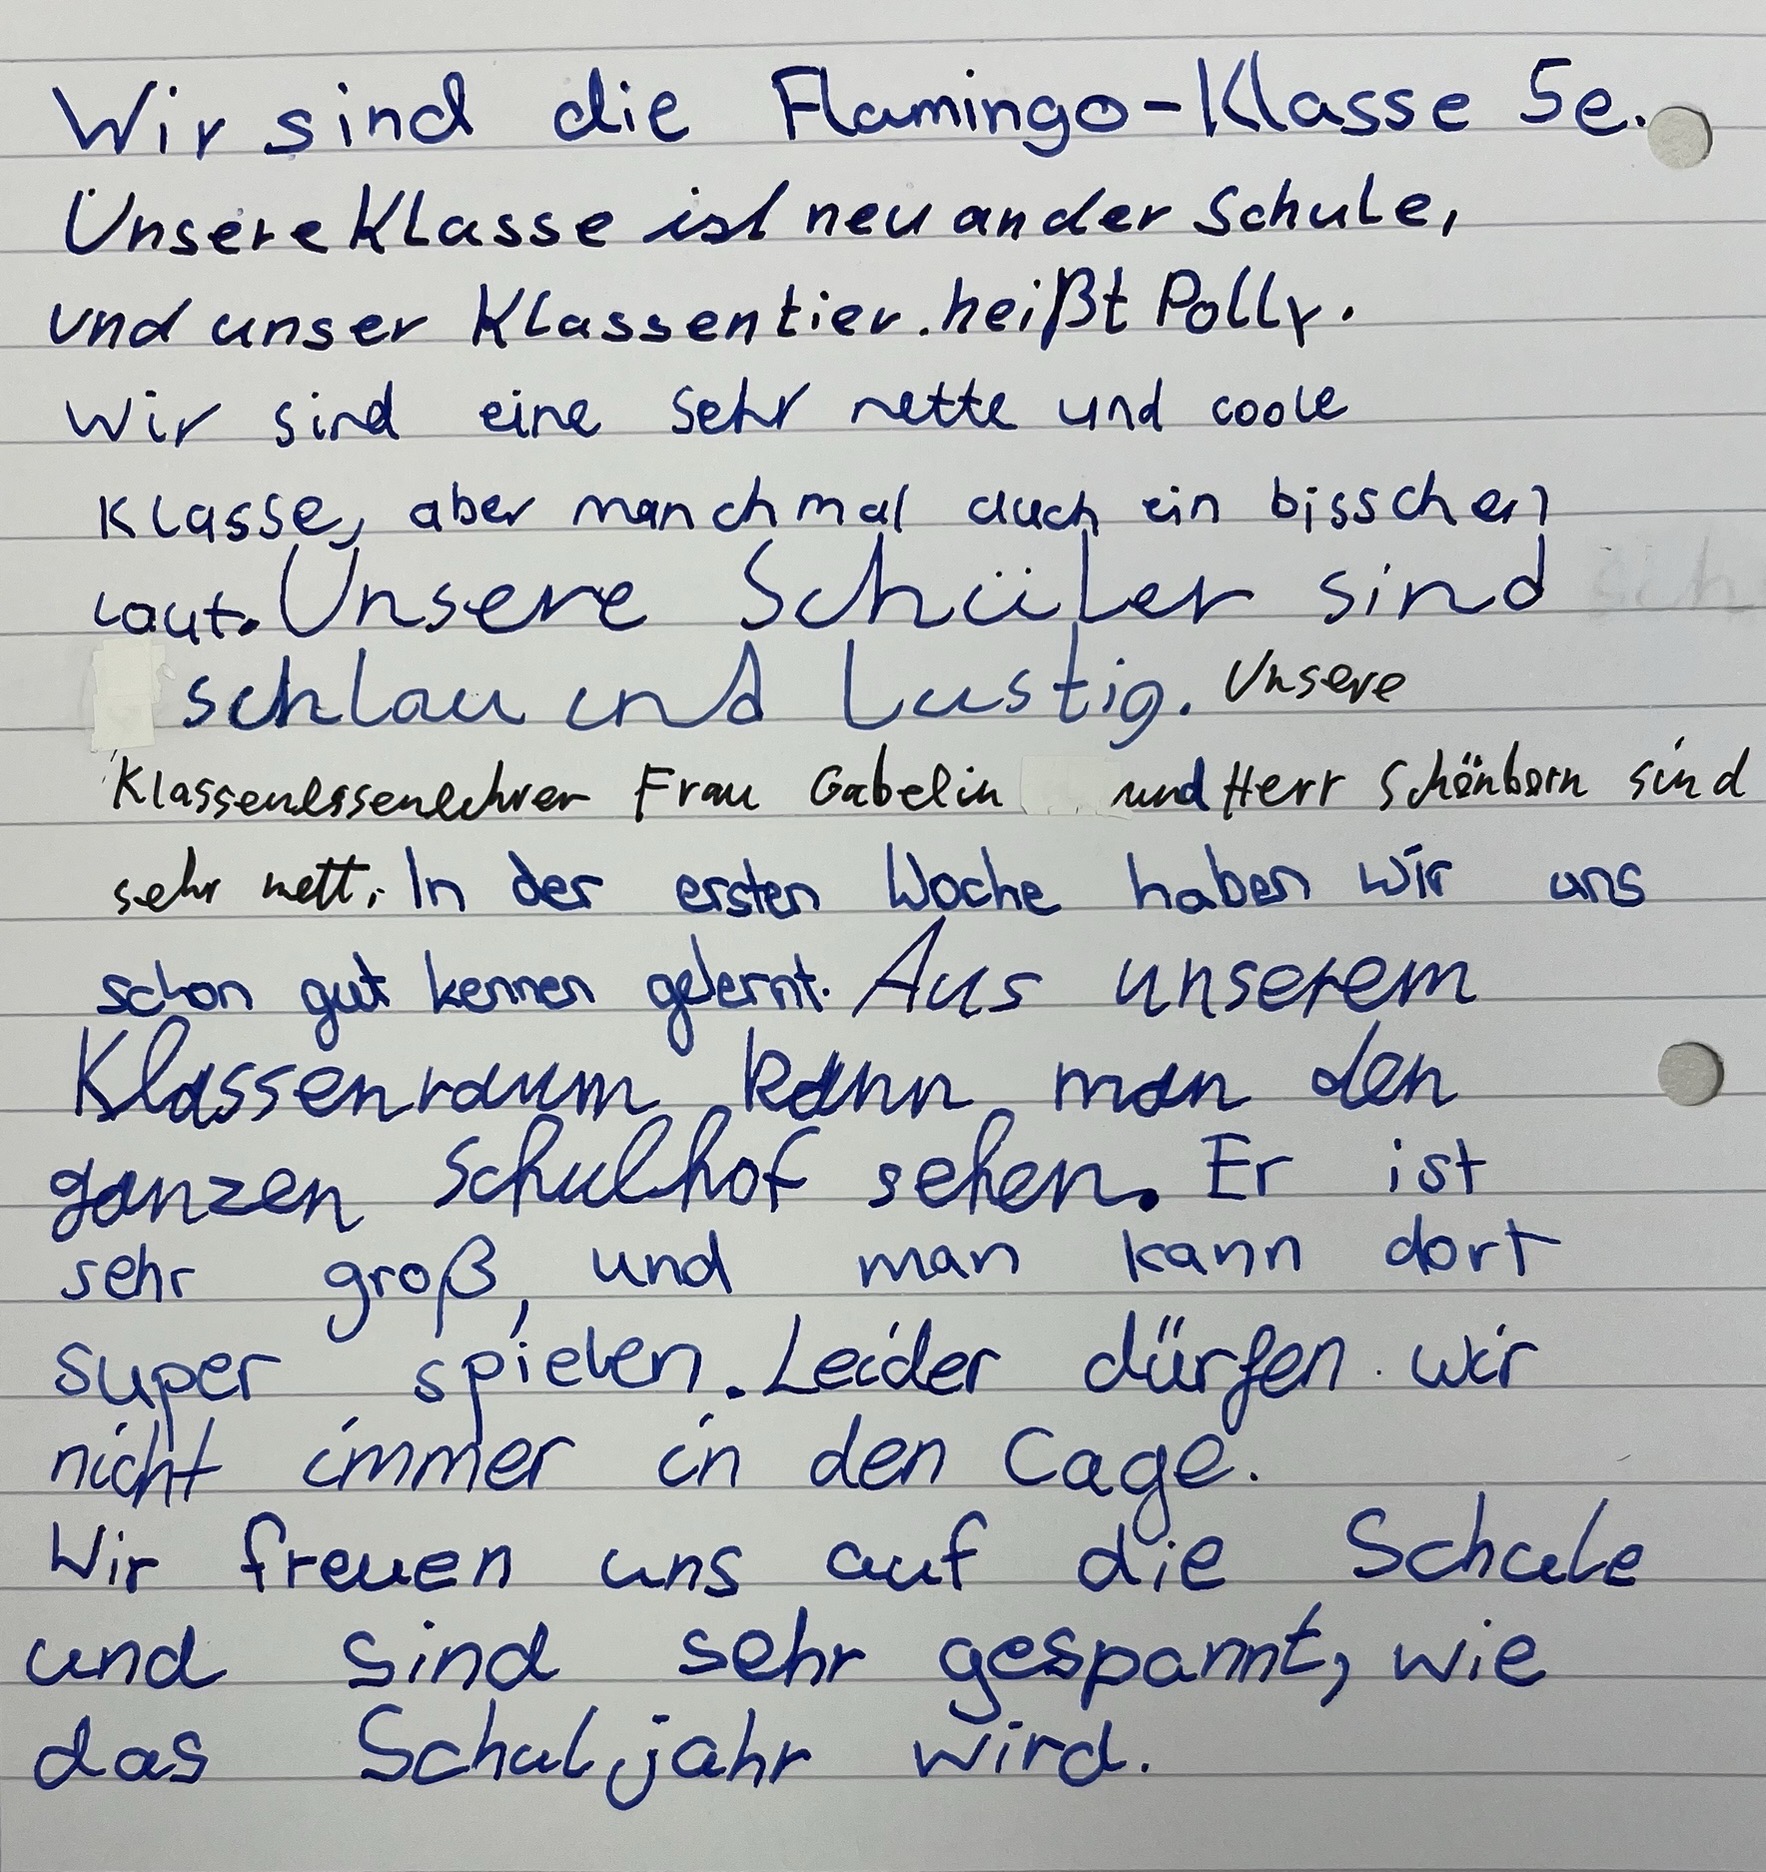 Wir sind die Flamingo-Klasse 5e.
Unsere Klasse ist neu an der Schule,
und unser Klassentier heißt Polly.
Wir sind eine sehr nette und coole
Klasse, aber manchmal auch ein bisschen
laut. Unsere Schüler sind
schlau und lustig. Unsere
Klassenlssenlehrer Frau Gabelin und Herr Schönborn sind
sehr nett. In der ersten Woche haben wir uns
schon gut kennen gelernt. Aus unserem
Klassenraum kann man den
ganzen Schulhof sehen. Er ist
sehr groß, und man kann dort
super spielen. Leider dürfen wir
nicht immer in den Cage.
Wir freuen uns auf die Schule
und sind sehr gespannt, wie
das Schuljahr wird.